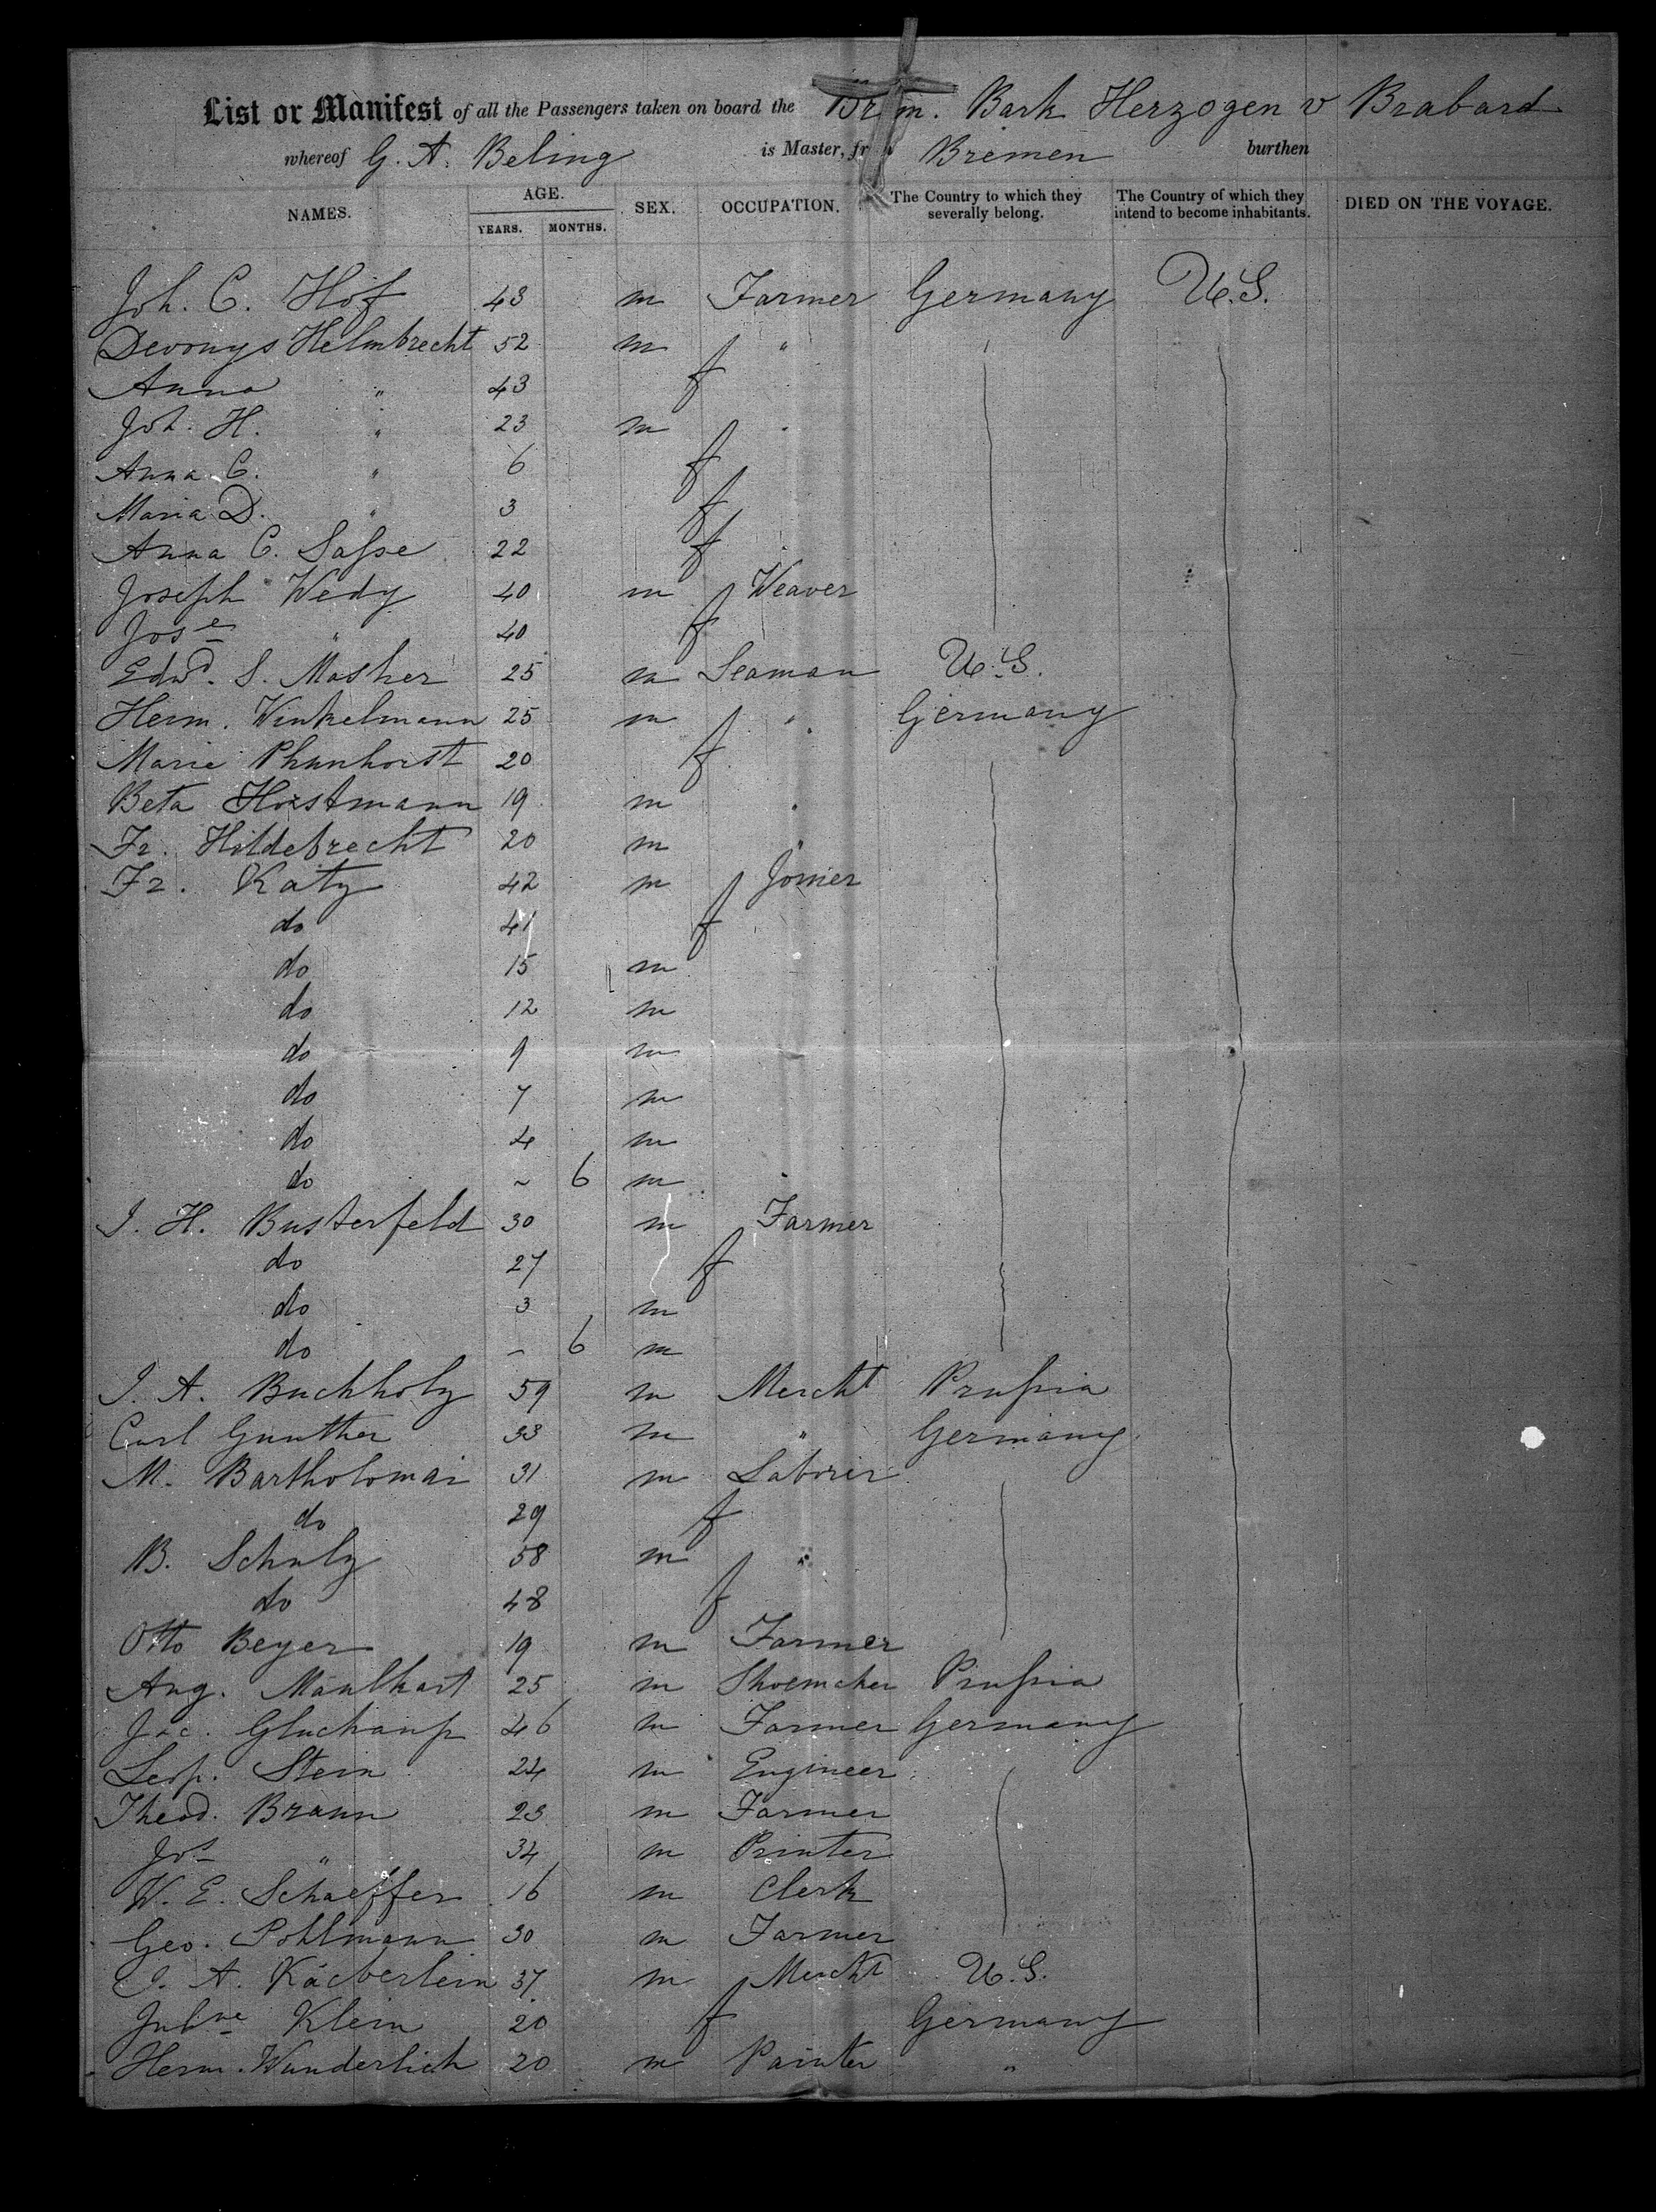 List or Manifest of all the Passengers taken on board the Brem. Bark Herzogen v Brabard
whereof G. A. Beling is Master, from Bremen burthen
NAMES. AGE. YEARS. MONTHS. SEX. OCCUPATION. The Country to which they severally belong. The Country of which they intend to become inhabitants. DIED ON THE VOYAGE.
Joh. C. Hof 43 m Farmer Germany U.S.
Devonys Helmbrecht 52 m "
Anna " 43 f
Joh. H. " 23 m "
Anna C. " 6 f
Maria D. " 3 f
Anna C. Sasse 22 f
Joseph Wedy 40 m Weaver
Jose " 40 f
Edwd. S. Mosher 25 m Seaman U.S.
Herm. Winkelmann 25 m " Germany
Marie Phunhorst 20 f
Beta Horstmann 19 m "
Fr. Hildebrecht 20 m "
Fr. Katz 42 m Joiner
do 41 f
do 15 m
do 12 m
do 9 m
do 7 m
do 4 m
do ~ 6 m
J. H. Busterfeld 30 m Farmer
do 27 f
do 3 m
do – 6 m
J. A. Buchholz 59 m Mercht Prussia
Carl Gunther 33 m " Germany
M. Bartholomai 31 m Laborer
do 29 f
B. Schulz 58 m "
do 48 f
Otto Beyer 19 m Farmer
Aug. Maulhart 25 m Shoemcher Prussia
Jac. Gluckauf 46 m Farmer Germany
Leop. Stein 24 m Engineer
Theod. Braun 23 m Farmer
Jos " 34 m Printer
W. E. Schaeffer 16 m Clerk
Geo. Pohlmann 30 m Farmer
J. A. Käcberlein 37 m Mercht U.S.
Julne Klein 20 f Germany
Herm. Wunderlich 20 m Painter "